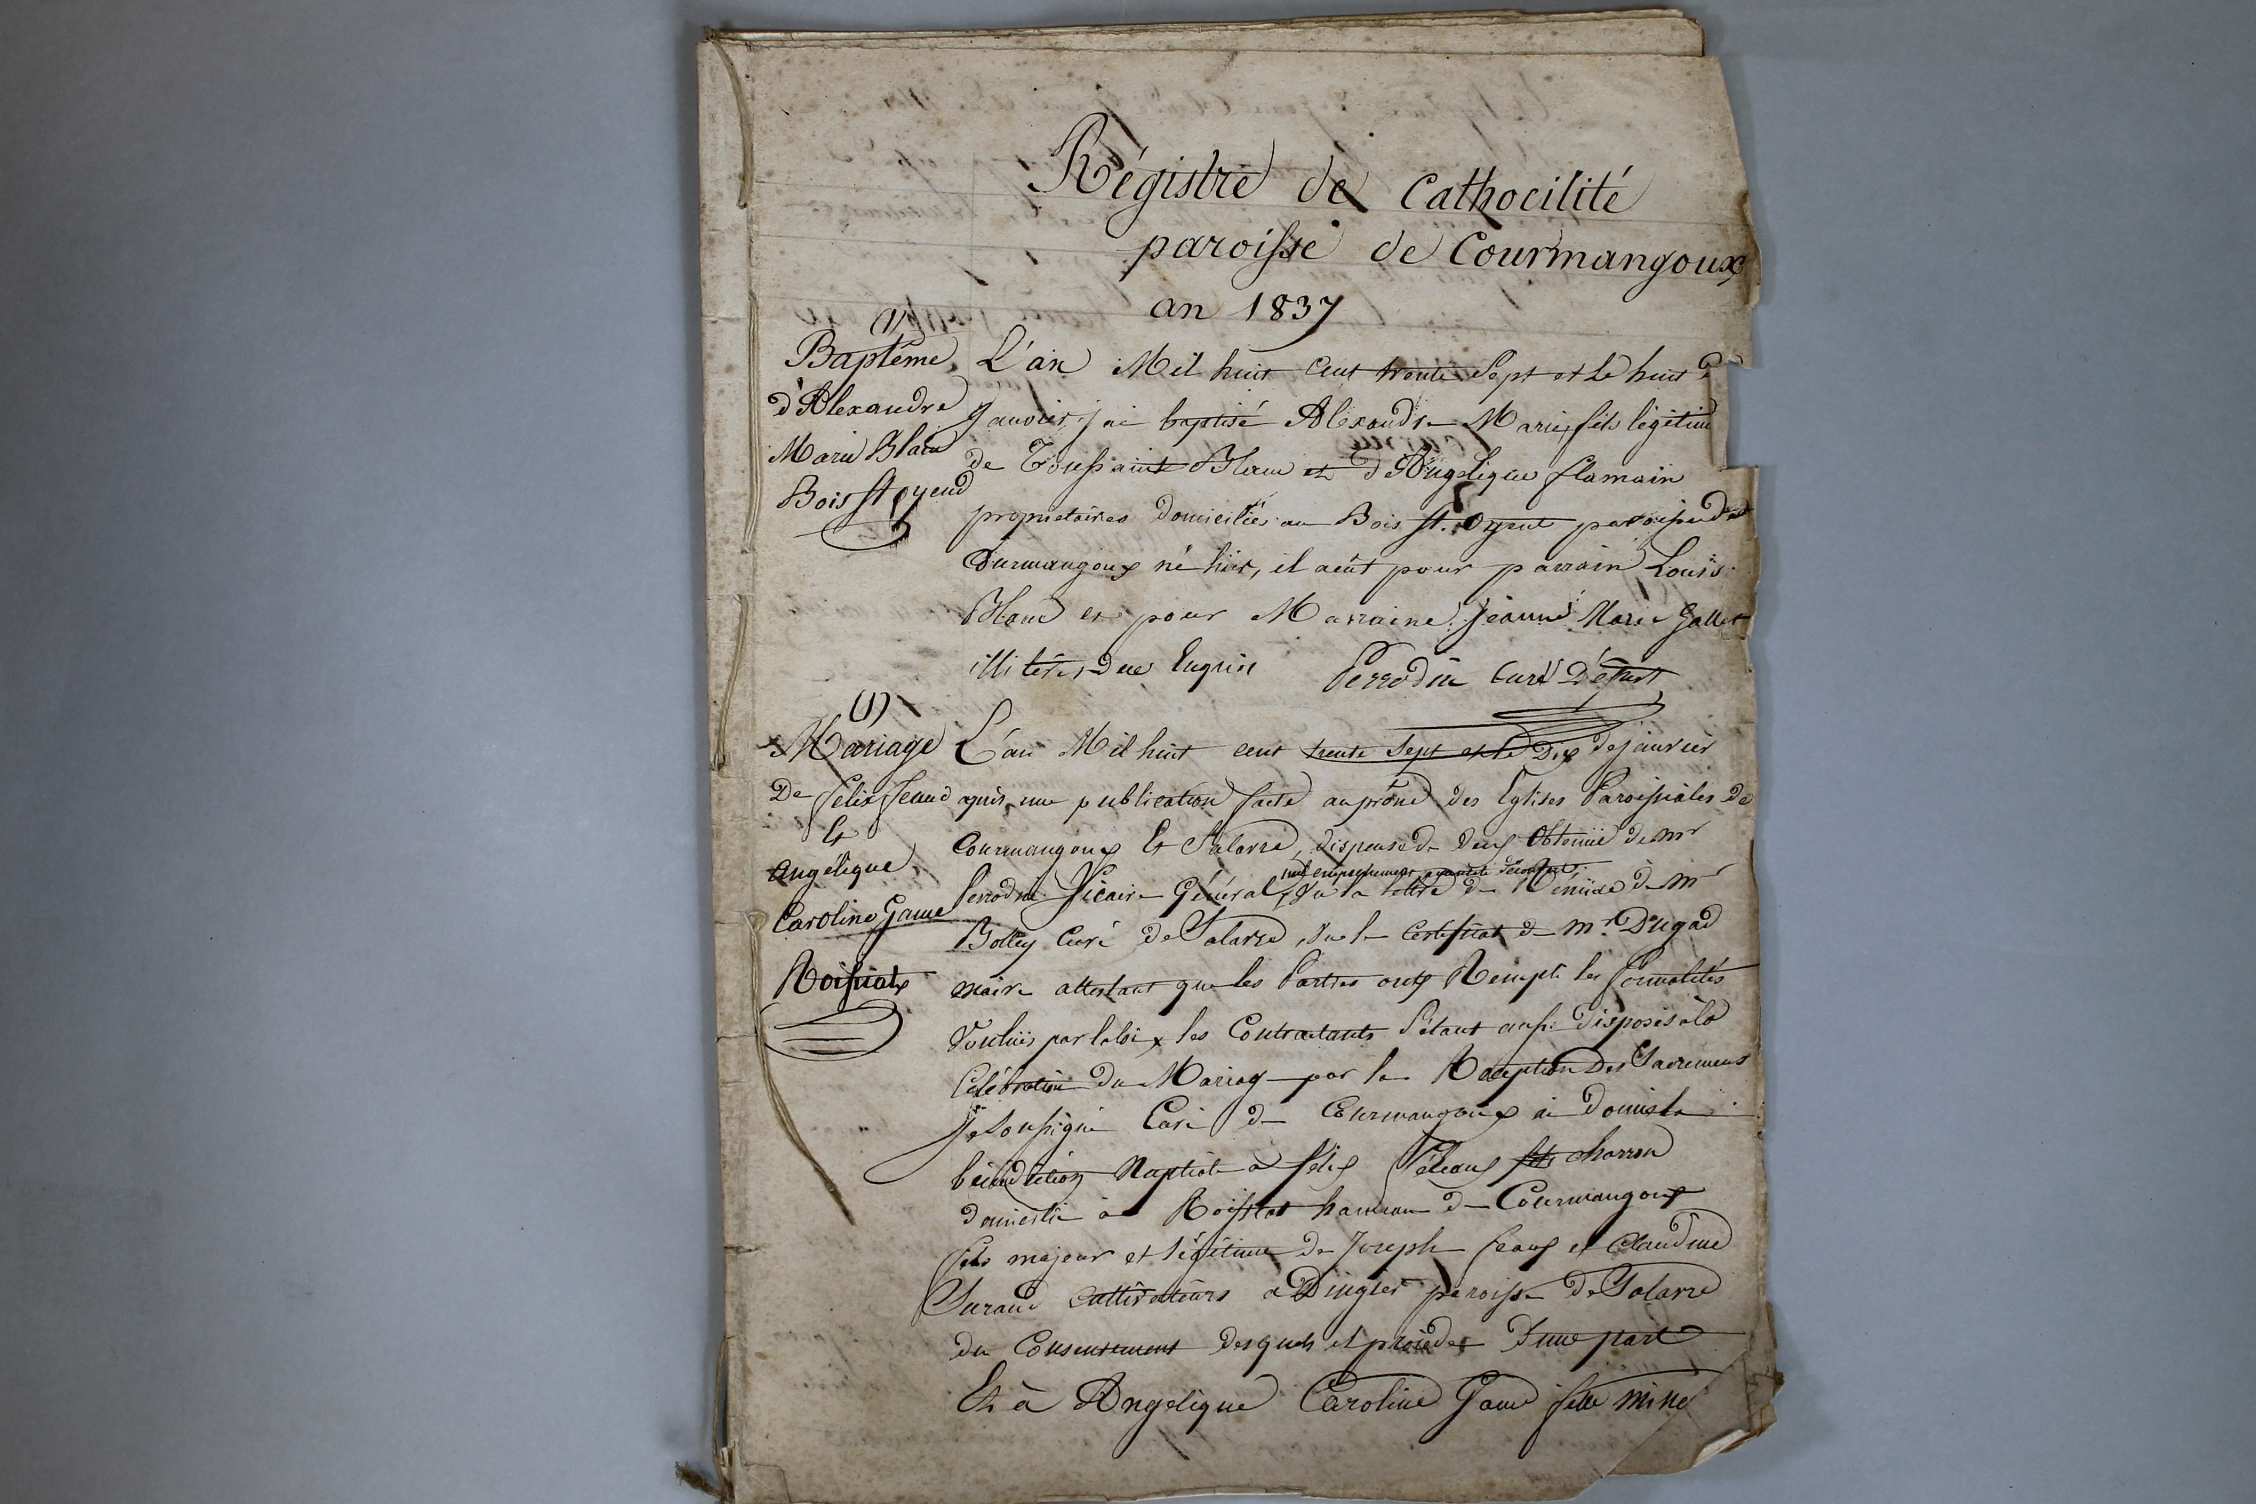 Régistre de Cathocilité
paroisse de Courmangoux
an 1837
(1)
Baptême
d'Alexandre
Marie Blanc
Bois St Oyend
L'an Mil huit Cent trente Sept et Le huit
Janvier j'ai baptisé Alexandre Marie, fils légitim
de Toussaint Blanc et d'Angelique flamain
proprietaires domiciliés au Bois St. Oyent paroisse de
Curmangoux né hier, il aeût pour parrain Louis
Blanc et pour Marraine Jeanne Marie Gallet
illitérés Dee Enquis Perrodin Curé Déserv
(1)
Mariage
De felix feaud
Et
Angélique
Caroline Gaune
Roissiat
L'an Mil huit cent trente Sept et le Dix de janvier
après une publication faite au prône des Eglises Paroissiales de
Courmangoux Et Salavre, dispense de deux Obtenüe de mr
Perrodin Vicaire Général, vu la lettre de Remise de mr
Bolley Curé de Salavre, vu le Certificat de mr Dugad
maire attestant que les Parties ont Rempli les formalités
Voulües par la loi les Contractants S'étant aussi disposés à la
Célébration du Mariag par la Réception Des Sacremens
Je Soussigné Curé de Courmangoux ai donné la
bénédiction Nuptiale à félix féaux charron
domicilié à Roissiat hameau de Courmangoux
fils majeur et légitime de Joseph feaux et Claudine
Suraud cultivateurs à Dingier paroisse de Salavre
du Consentement desquels il procède D'une part
Et à Angelique Caroline Gaune fille mine